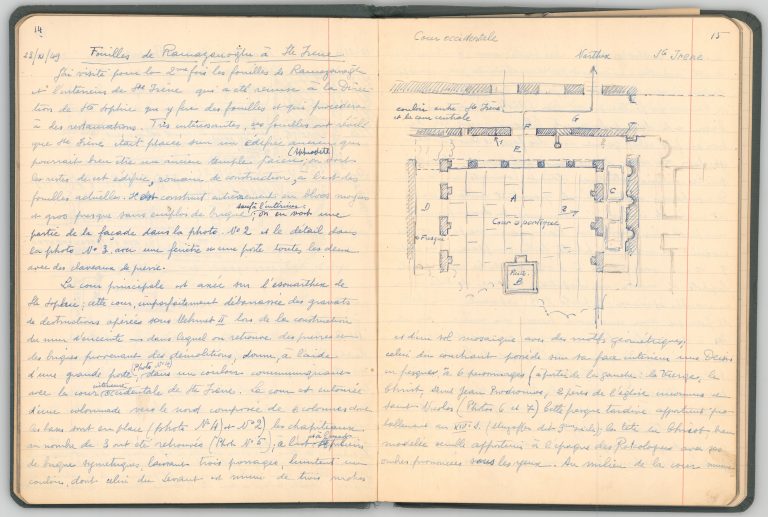 14
23/XI/49 Fouilles de Ramazanoğlu à Ste Irène
J'ai visité pour la 2me fois les fouilles de Ramazanoğlu
et l'intérieur de Ste Irène, qui a été remise à la Direc
tion de Ste Sophie qui y fait des fouilles et qui procédera
à des restaurations. Très intéressantes, ses fouilles ont révélé
que Ste Irène était placée sur un édifice ancien qui
pourrait bien être un ancien temple païen (Aphrodite), on voit
les restes de cet édifice, romain de construction, à l'est des
fouilles actuelles. Il est construit entièrement en blocs moyens
et gros presque sans emploi de brique sauf à l'intérieur; on en voit une
partie de la façade dans la photo No 2 et le détail dans
la photo No 3 avec une fenêtre et une porte toutes les deux
avec des claveaux de pierre.
La cour principale est axée sur l'esonarthex de
Ste Sophie; cette cour, imparfaitement débarassée des gravats
de destructions opérées sous Mehmet II lors de la construction
du mur d'enceinte dans lequel on retrouve des pierres
des briques provenant des démolitions, donne, à l'aide
d'une grande porte (Photo No 4), dans un couloir communiquant
avec la cour intérieure occidentale de Ste Irène. La cour est entourée
d'une colonnade vers le nord composée de 6 colonnes dont
les bases sont en place (photo No 4 et No 2) les chapiteaux
au nombre de 3 ont été retrouvés (Phot No 5); à l'est
de brique symétriques, laissant trois passages, limitent un
couloir, dont celui du Levant est muni de trois niches
15
Cour occidentale
Narthex
Ste Irène
couloir entre Ste Irène
et la cour centrale
G
F
E
A
Cour à portique
2
C
D
Fresque
Puits
B
et d'un sol mosaïque avec des motifs géométriques;
celui du couchant possède sur sa face intérieure une Deisis
en fresques à 6 personnages (à partir de la gauche: la Vierge, le
Christ, Saint Jean Prodromos, 2 pères de l'église inconnus et
Saint Nicolas (Photos 6 et 7) Cette fresque tardive appartient pro-
bablement au XIV s. la tête du Christ, bien
modelée semble appartenir à l'époque des Paléologues avec ses
ombres prononcées sous les yeux. Au milieu de la cour